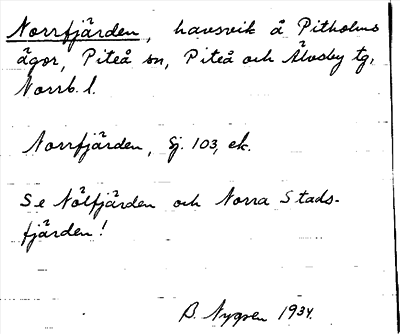 Norrfjärden, havsvik å Pitholms
ägor, Piteå sn, Piteå och Älvsby tg,
Norrb. l.
Norrfjärden, Sj. 103, ek.
Se Nölfjärden och Norra Stads-
fjärden!
B. Nygren 1934.